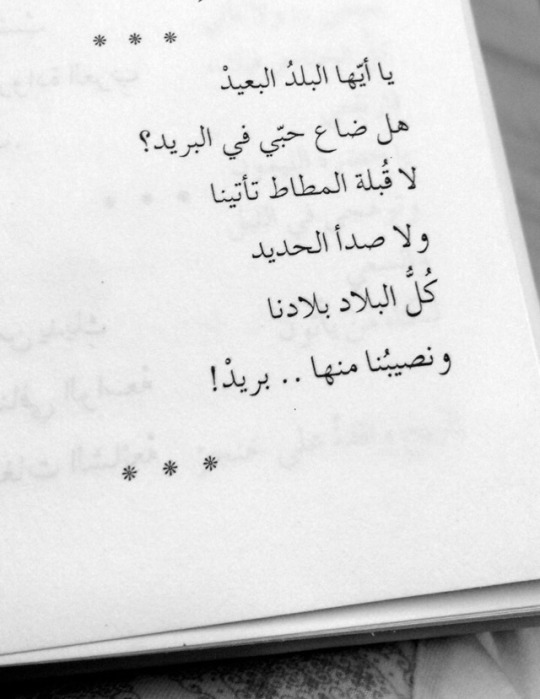 * * *
يا أيّها البلدُ البعيدْ
هل ضاع حبّي في البريد؟
لا قُبلة المطاط تأتينا
ولا صدأ الحديد
كُلُّ البلاد بلادنا
ونصيبُنا منها .. بريدْ!
* * *